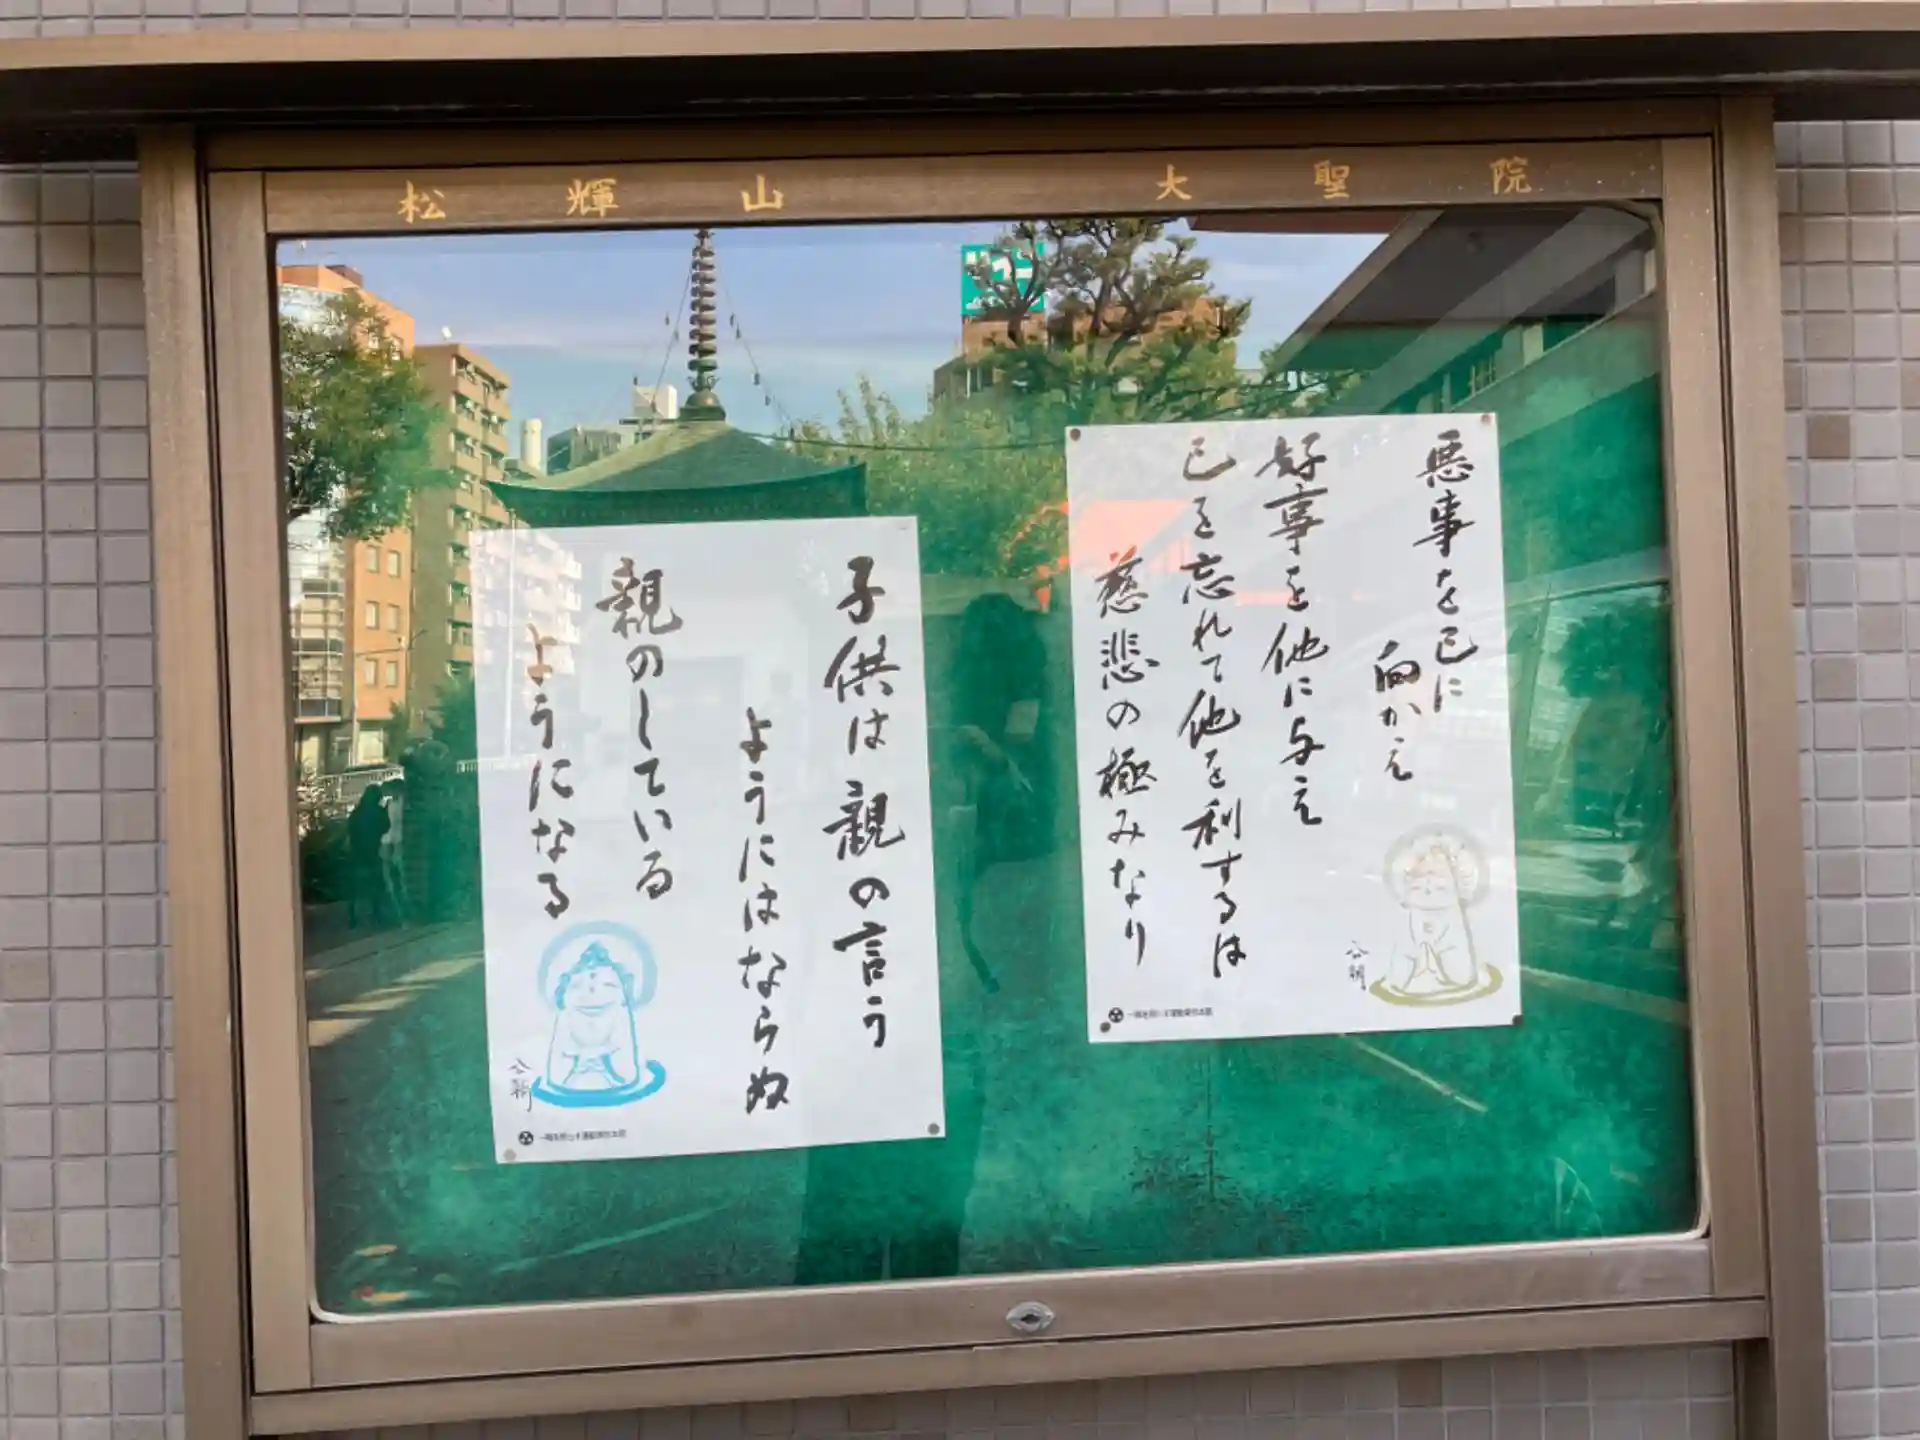 松輝山 大聖院
悪事を己に
向かえ
好事を他に与え
己を忘れて他を利するは
慈悲の極みなり
子供は親の言う
ようにはならぬ
親のしている
ようになる